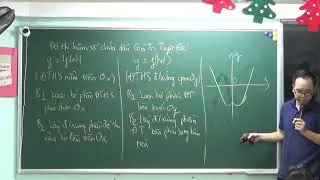 Đồ thị hàm số chứa dấu Giá Trị Tuyệt Đối
y = |f(x)|
y = f(|x|)
1) ĐTHS nằm trên Ox
B1 Loại bỏ phần ĐTHS
phía dưới Ox
B2 Lấy đ/xứng phần đồ thị
vừa bỏ lên trên Ox
ĐTHS đ/xứng qua Oy
B1 Loại bỏ phần ĐT
bên trái Oy
B2 Lấy đ/xứng phần
ĐT bên phải sang bên
trái